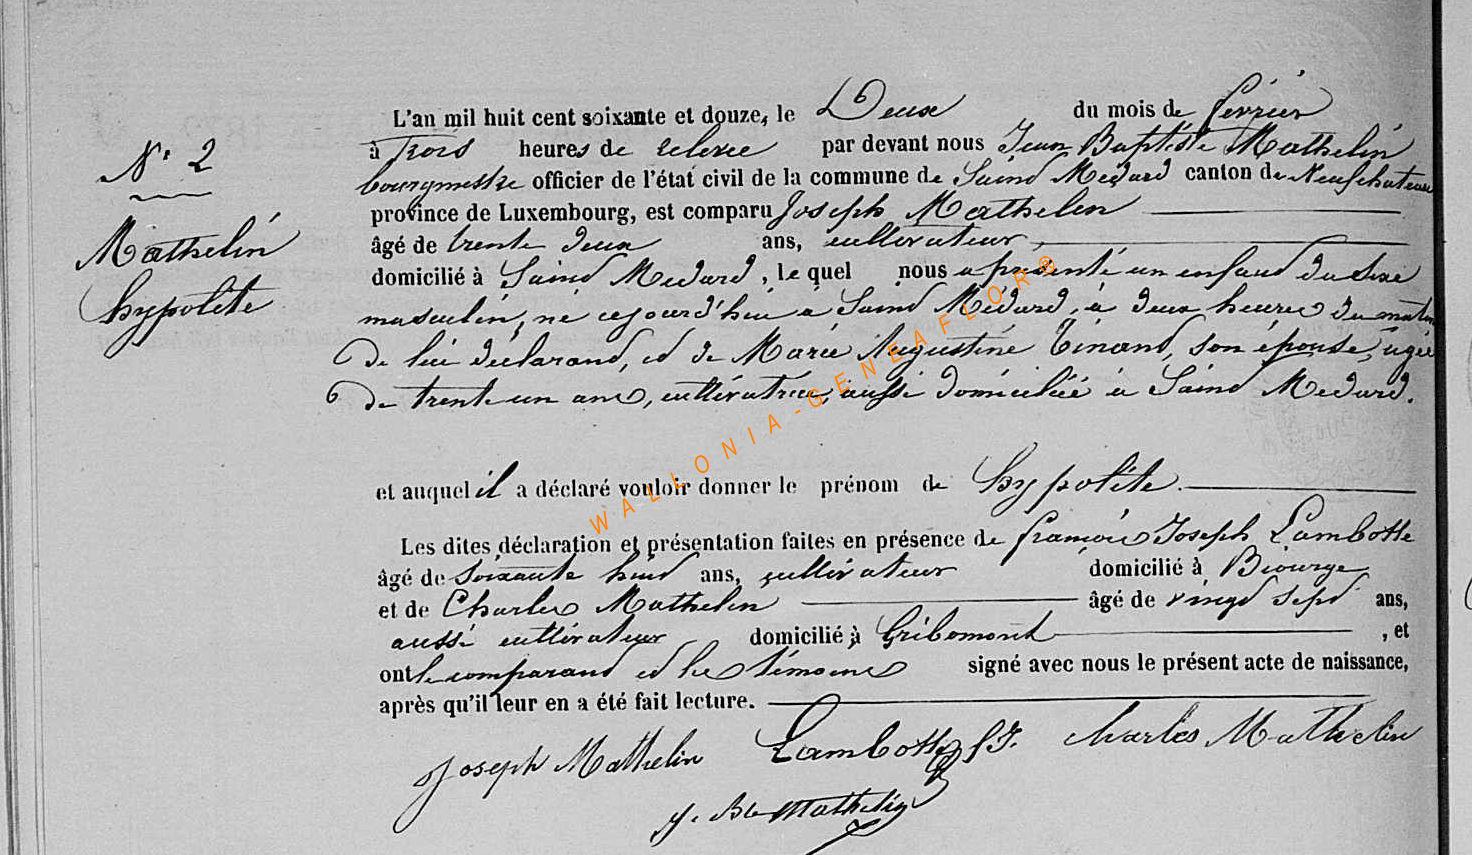 L'an mil huit cent soixante et douze, le Deux du mois de fevrier
à trois heures de relevée par devant nous Jean Baptiste Mathelin
bourgmestre officier de l'état civil de la commune de Saind Medard canton de Neufchateau
province de Luxembourg, est comparu Joseph Mathelin
âgé de trente deux ans, cultivateur,
domicilié à Saind Medard, le quel nous a présenté un enfand du sexe
masculin, né cejourd'hui à Saind Médard, à deux heures du matin
de lui déclarand, ed de Marie Augustine Tinand, son épouse, agée
de trente un ans, cultivatrice, aussi domiciliée à Saind Medard.
N° 2
Mathelin
hypolite
et auquel il a déclaré vouloir donner le prénom de hypolite.
Les dites déclaration et présentation faites en présence de françois Joseph Lambotte
âgé de soixante huid ans, cultivateur domicilié à Biourge
et de Charles Mathelin âgé de vingd sepd ans,
aussi cultivateur domicilié à Gribomont , et
ont le comparand ed les témoins signé avec nous le présent acte de naissance,
après qu'il leur en a été fait lecture.
Joseph Mathelin Lambotte f J. Charles Mathelin
J. Bte Mathelin
WALLONIA-GENEAFLOR®